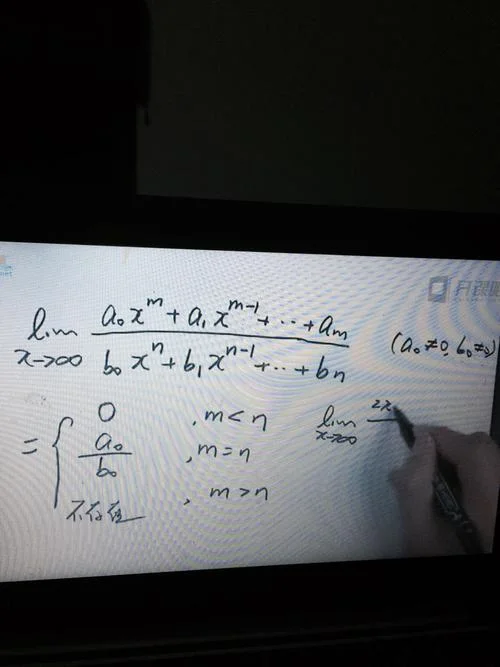 开课吧
lim a₀xᵐ + a₁xᵐ⁻¹ + ··· + aₘ
x→∞ b₀xⁿ + b₁xⁿ⁻¹ + ·· + bₙ
(a₀≠0, b₀≠0)
= { 0 , m < n
a₀/b₀ , m = n
不存在 , m > n
lim 2x
x→∞